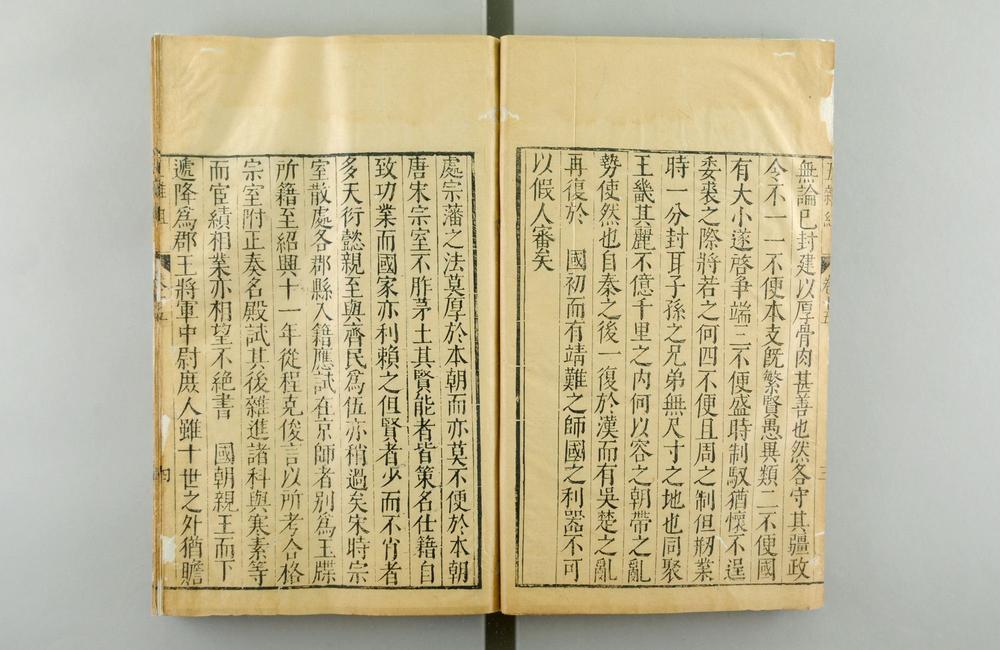 無論已封建以厚骨肉甚善也然各守其疆政
令不一一不便本支旣繁賢愚異類二不便國
有大小遂啓争端三不便盛時制馭猶懷不逞
委裘之際將若之何四不便且周之制但剏業
時一分封耳子孫之兄弟無尺寸之地也同聚
王畿其麗不億千里之内何以容之朝帶之亂
勢使然也自秦之後一復於漢而有吳楚之亂
再復於　國初而有靖難之師國之利器不可
以假人審矣
處宗藩之法莫厚於本朝而亦莫不便於本朝
唐宋宗室不胙茅土其賢能者皆策名仕籍自
致功業而國家亦利賴之但賢者少而不肖者
多天衍懿親至與齊民爲伍亦稍過矣宋時宗
室散處各郡縣入籍應試在京師者别爲玉牒
所籍至紹興十一年從程克俊言以所考合格
宗室附正奏名殿試其後雜進諸科與寒素等
而宦績相業亦相望不絶書　國朝親王而下
遞降爲郡王將軍中尉庶人雖十世之外猶贍